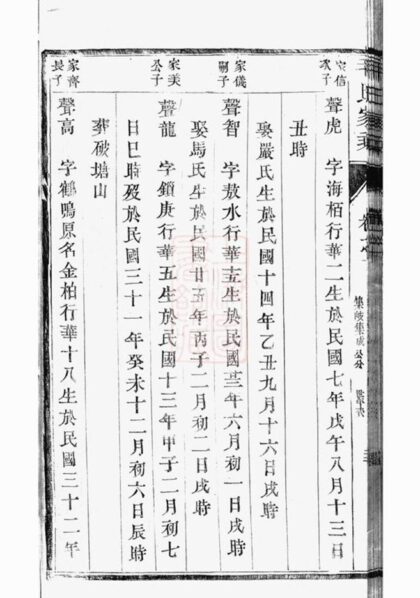 家信
次子
聲虎 字海栢行華二生於民國七年戊午八月十三日
丑時
娶嚴氏生於民國十四年乙丑九月十六日戌時
家儀
嗣子
聲智 字敖水行華玍生於民國三年六月初一日戌時
娶馬氏生於民國廿五年丙子二月初二日戌時
家美
公子
聲龍 字鎖庚行華五生於民國十三年甲子二月初七
日巳時歿於民國三十一年癸未十二月初六日辰時
葬破塘山
家齊
長子
聲高 字鶴鳴原名金柏行華十八生於民國三十二年